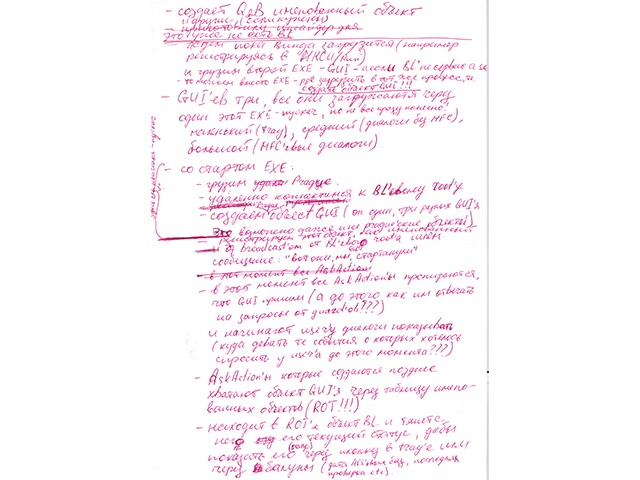 - создаёт QeB именованный объект
и другие (если нужны)
это уже не есть BL
ждём пока винда загрузится (например
регистрируясь в "HKCU/Run)
и грузим второй EXE - GUI - если BL не сервис а
то можем вместо EXE - загрузить в тот же процесс, и
создать объект GUI!!!
- GUI'ев три, все они загружаются через
один этот EXE - пускач, но не все сразу конечно:
маленький (tray), средний (диалоги без MFC),
большой (MFC'евые диалоги)
- со стартом EXE:
- грузим Prague
- удалённо коннектимся к BL'евому root'у
- создаём объект GUI (он один, три разных GUI'я
возможно даже или prague'ские объекты)
- регистрируем этот объект, как именованный
- broadcast'ом от BL'евого root'а шлём
сообщение: "вот они, мы, стартанули"
- в этот момент все AskActions
- в этот момент все AskAction'ы прочухаются,
что GUI пришли (а до этого как им отвечать
на запросы от ???)
и начинают диалоги показывать
(куда девать те события о которых хотелось
спросить у до этого момента???)
- AskAction'ы которые создаются позднее
хватают объект GUI'я через таблицу имено-
ванных объектов (ROT!!!)
- находит в ROT'е объект BL и
него его текущий статус, дабы
показать его через иконку в tray'е или
через балуны (дата баз, последняя
проверка etc).